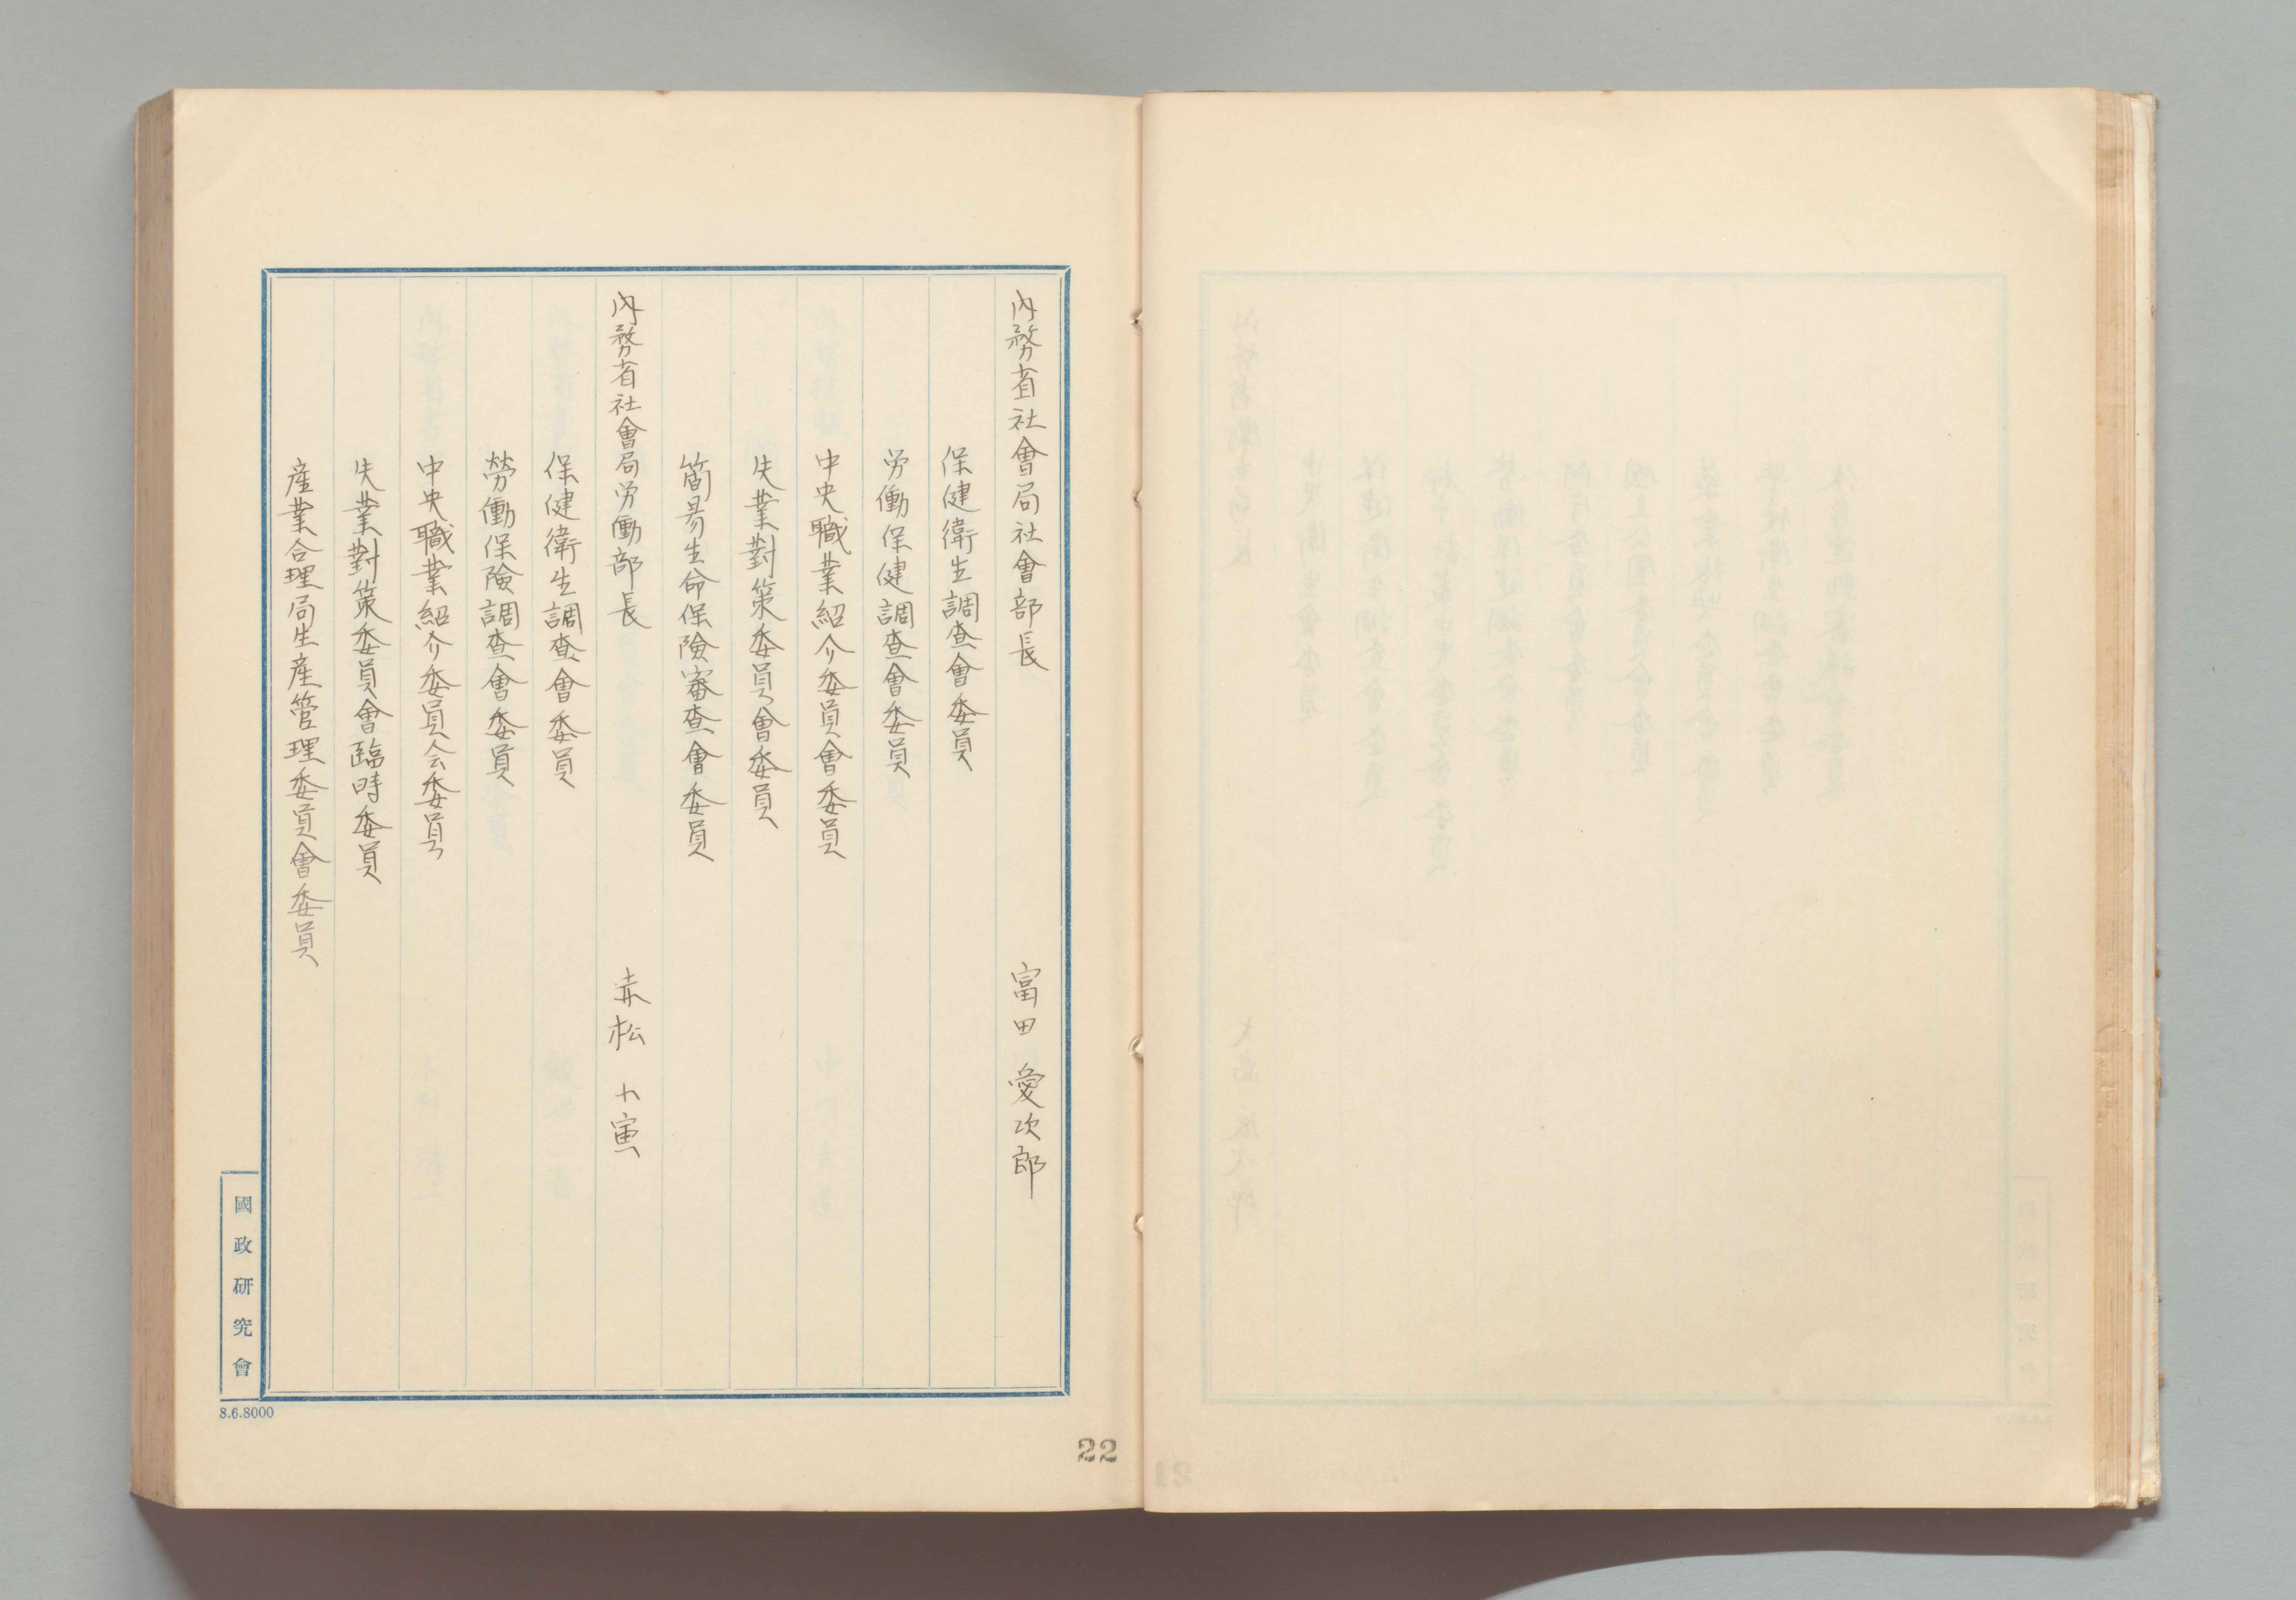 内務省社會局社會部長　富田愛次郎
保健衛生調査會委員
労働保健調査會委員
中央職業紹介委員會委員
失業對策委員會委員
簡易生命保險審査會委員
内務省社會局労働部長　赤松小寅
保健衛生調査會委員
勞働保險調査會委員
中央職業紹介委員会委員
失業對策委員會臨時委員
産業合理局生産管理委員會委員
國政研究會
8.6.8000
22